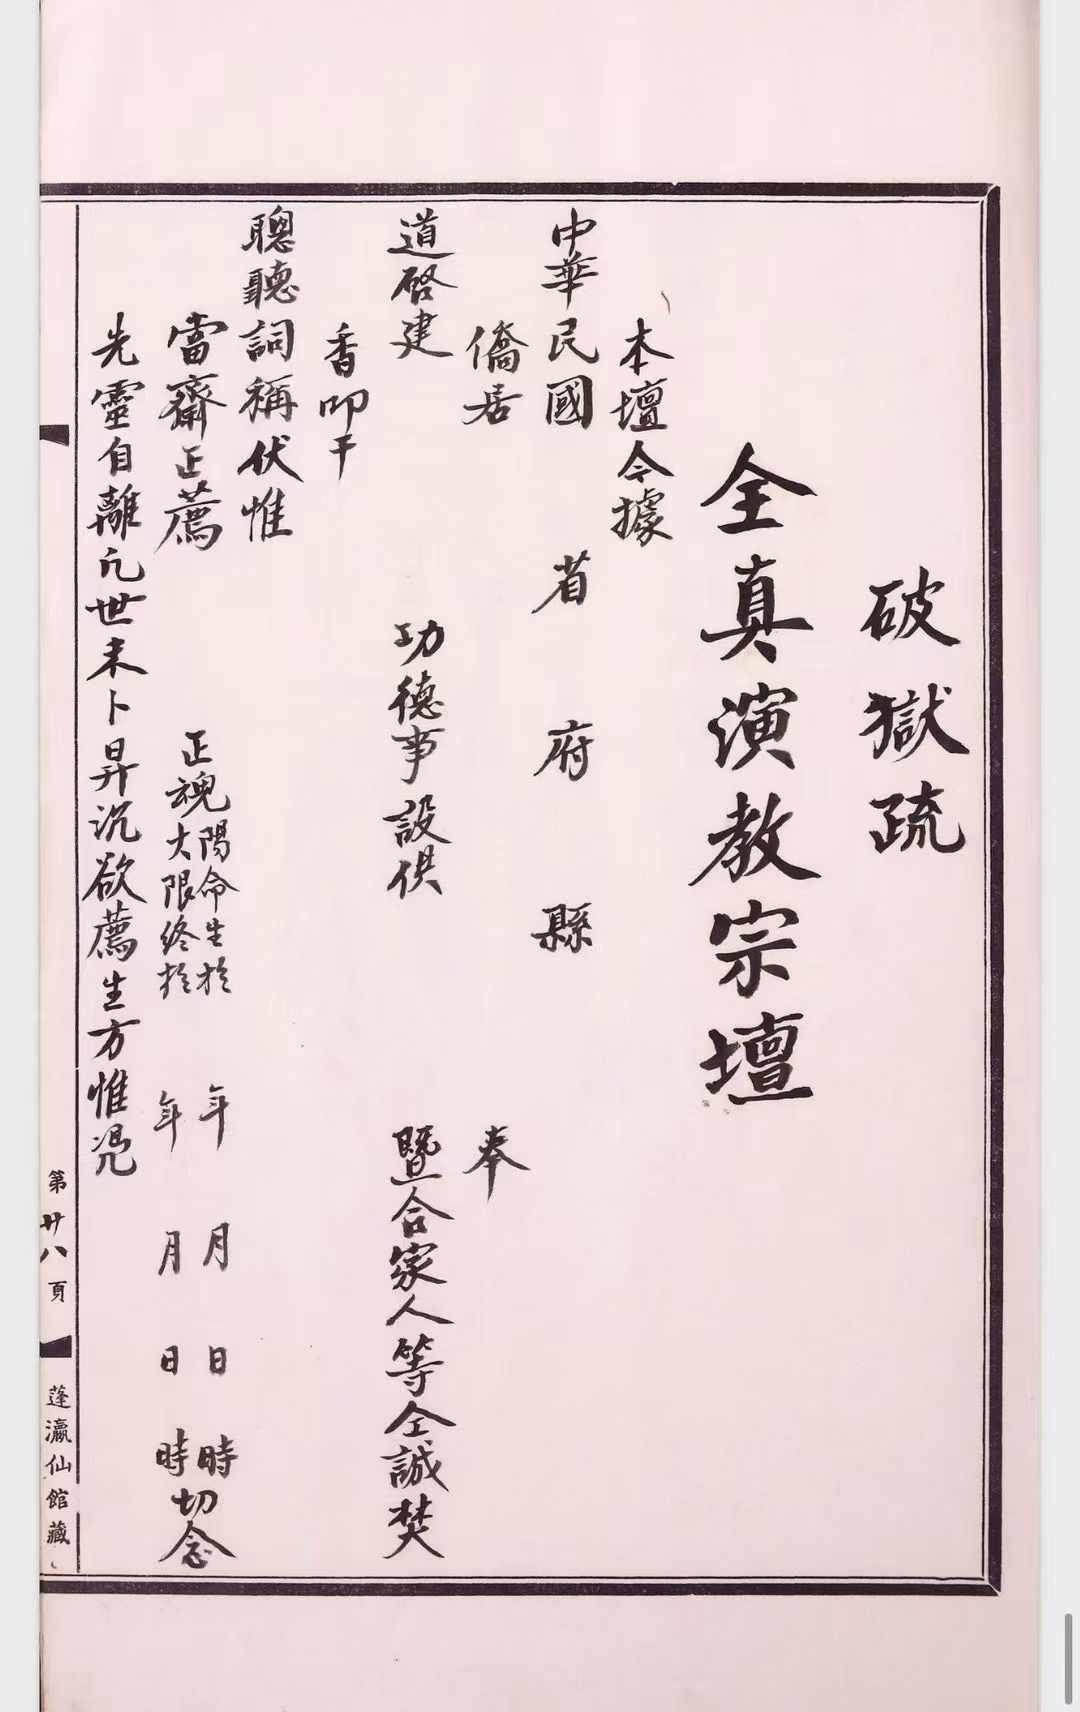 破獄疏
全真演教宗壇
本壇今據
中華民國 省 府 縣
僑居 奉
道啓建 功德事設供 暨合家人等仝誠焚
香叩干
聰聽詞稱伏惟
當齋正薦 正魂陽命生於 年 月 日 時
大限終於 年 月 日 時切念
先靈自離凢世未卜昇沉欲薦生方惟凴
第廿八頁
蓬瀛仙館藏